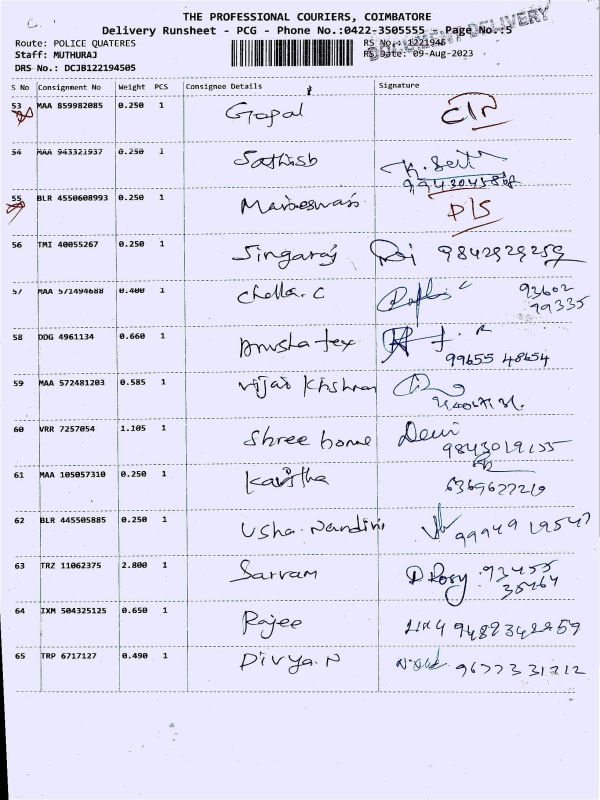 THE PROFESSIONAL COURIERS, COIMBATORE
Delivery Runsheet - PCG - Phone No.:0422-3505555 - Page No.:5
DOCUMENT DELIVERY
Route: POLICE QUATERES RS No.:1221946
Staff: MUTHURAJ RS Date: 09-Aug-2023
DRS No.: DCJB122194505
S No Consignment No Weight PCS Consignee Details Signature
53 MAA 859982085 0.250 1 Gopal
54 MAA 943321937 0.250 1 Sathish
55 BLR 4550608993 0.250 1 D/S
56 TMI 40055267 0.250 1 Singaraj 9842929259
57 MAA 571494688 0.400 1 Chella. C 93602
99335
58 DDG 4961134 0.660 1 Anusha tex
99655 48654
59 MAA 572481203 0.585 1
60 VRR 7257054 1.105 1 Shree home Devi
9843019155
61 MAA 105057310 0.250 1 Kavitha
6369627219
62 BLR 445505885 0.250 1 Usha Nandini 9994919547
63 TRZ 11062375 2.800 1 Sarvam D Rosy 93455
35464
64 IXM 504325125 0.650 1 Rajee
65 TRP 6717127 0.490 1 Divya.N 9677331212